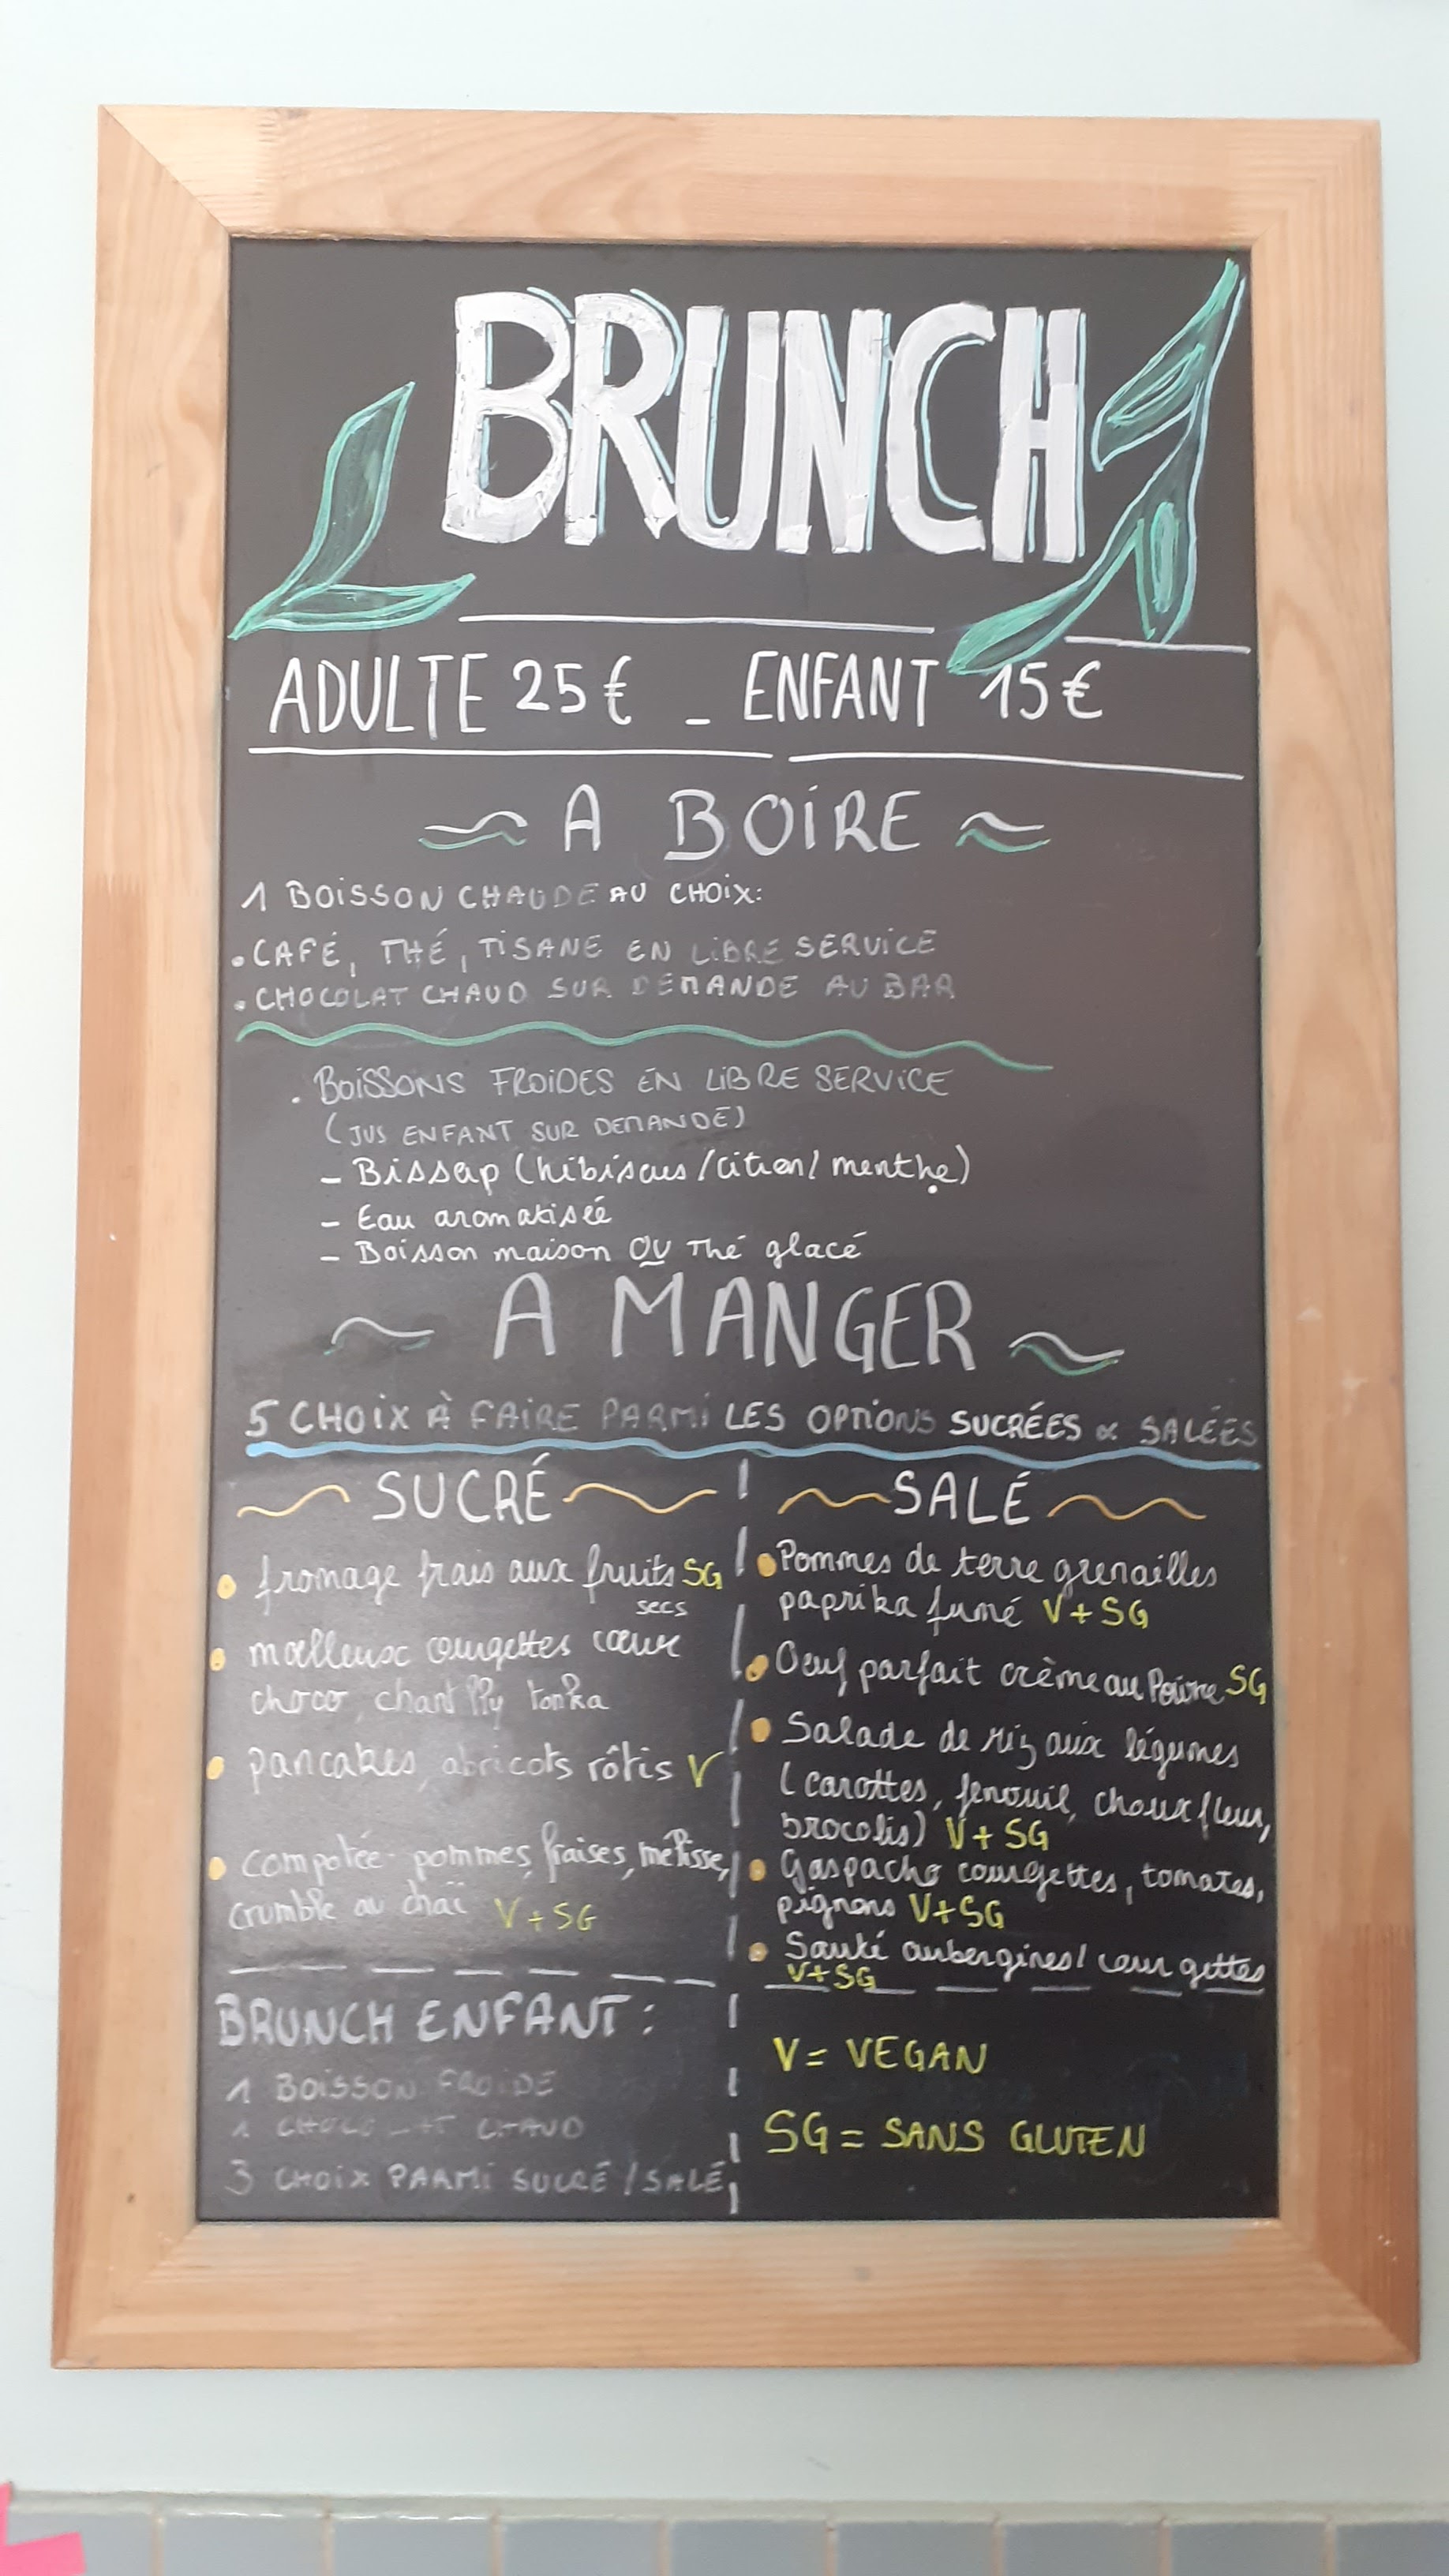 BRUNCH
ADULTE 25€ - ENFANT 15€
A BOIRE
1 BOISSON CHAUDE AU CHOIX:
• CAFÉ, THÉ, TISANE EN LIBRE SERVICE
• CHOCOLAT CHAUD SUR DEMANDE AU BAR
• BOISSONS FROIDES EN LIBRE SERVICE
(JUS ENFANT SUR DEMANDE)
- Bissap (hibiscus/citron/menthe)
- Eau aromatisée
- Boisson maison OU Thé glacé
A MANGER
5 CHOIX À FAIRE PARMI LES OPTIONS SUCRÉES & SALÉES
SUCRÉ
• fromage frais aux fruits SG
secs
• moelleux courgettes cœur
choco, chantilly tonka
• pancakes, abricots rôtis V
• compotée pommes, fraises, mélisse,
crumble au chaï V+SG
BRUNCH ENFANT:
1 BOISSON FROIDE
1 CHOCOLAT CHAUD
3 CHOIX PARMI SUCRÉ/SALÉ
SALÉ
• Pommes de terre grenailles
paprika fumé V+SG
• Oeuf parfait crème au Poivre SG
• Salade de riz aux légumes
(carottes, fenouil, choux fleur,
brocolis) V+SG
• Gaspacho courgettes, tomates,
pignons V+SG
• Sauté aubergines/courgettes
V+SG
V= VEGAN
SG= SANS GLUTEN